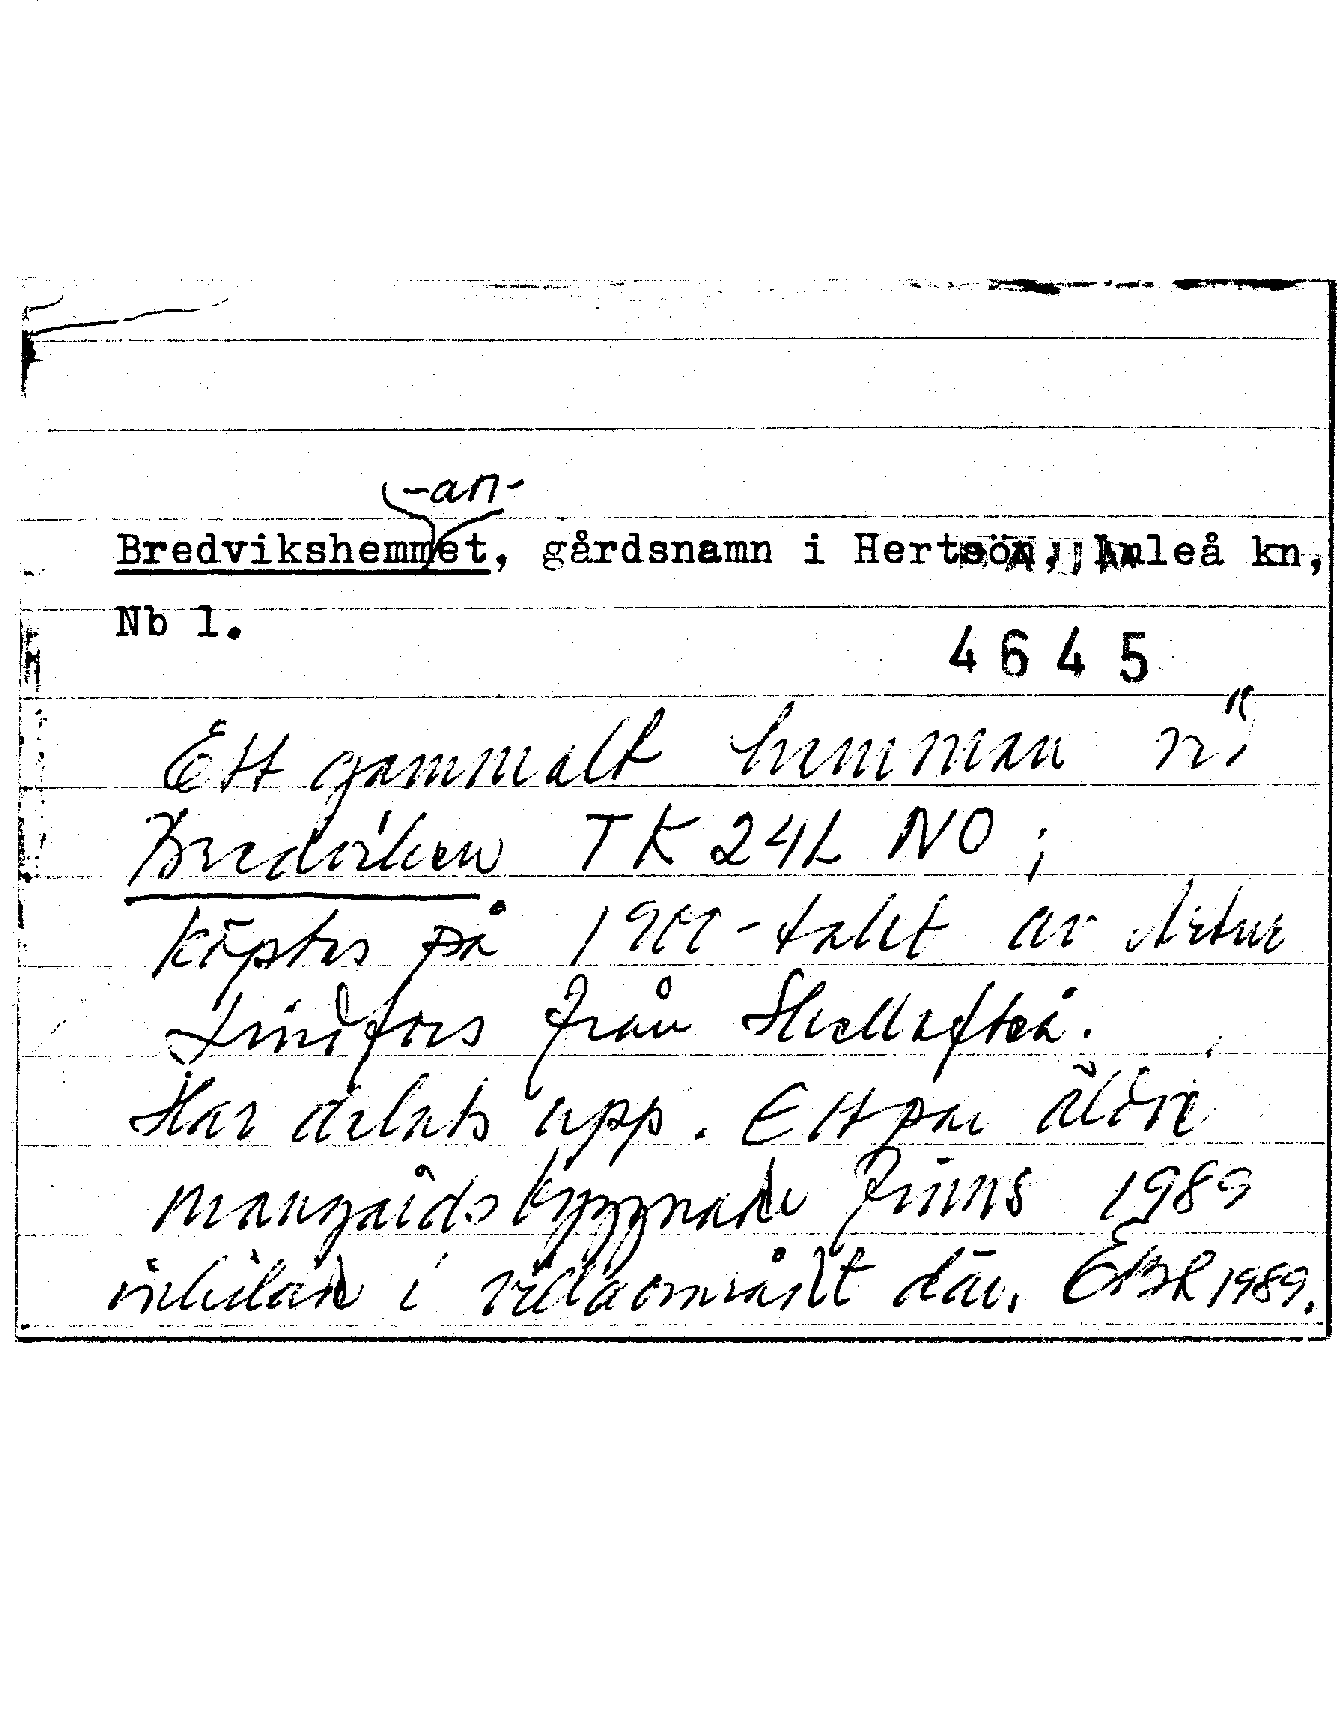 -an-
Bredvikshemmet, gårdsnamn i Hertsön, Luleå kn,
Nb l.
4645
Ett gammalt hemman vid
Bredviken TK 24L NO ;
köptes på 1900-talet av Artur
Lindfors från Skellefteå.
Har delats upp. Ett par äldre
mangårdsbyggnader finns 1989
i villaområdet där. EBR 1989.